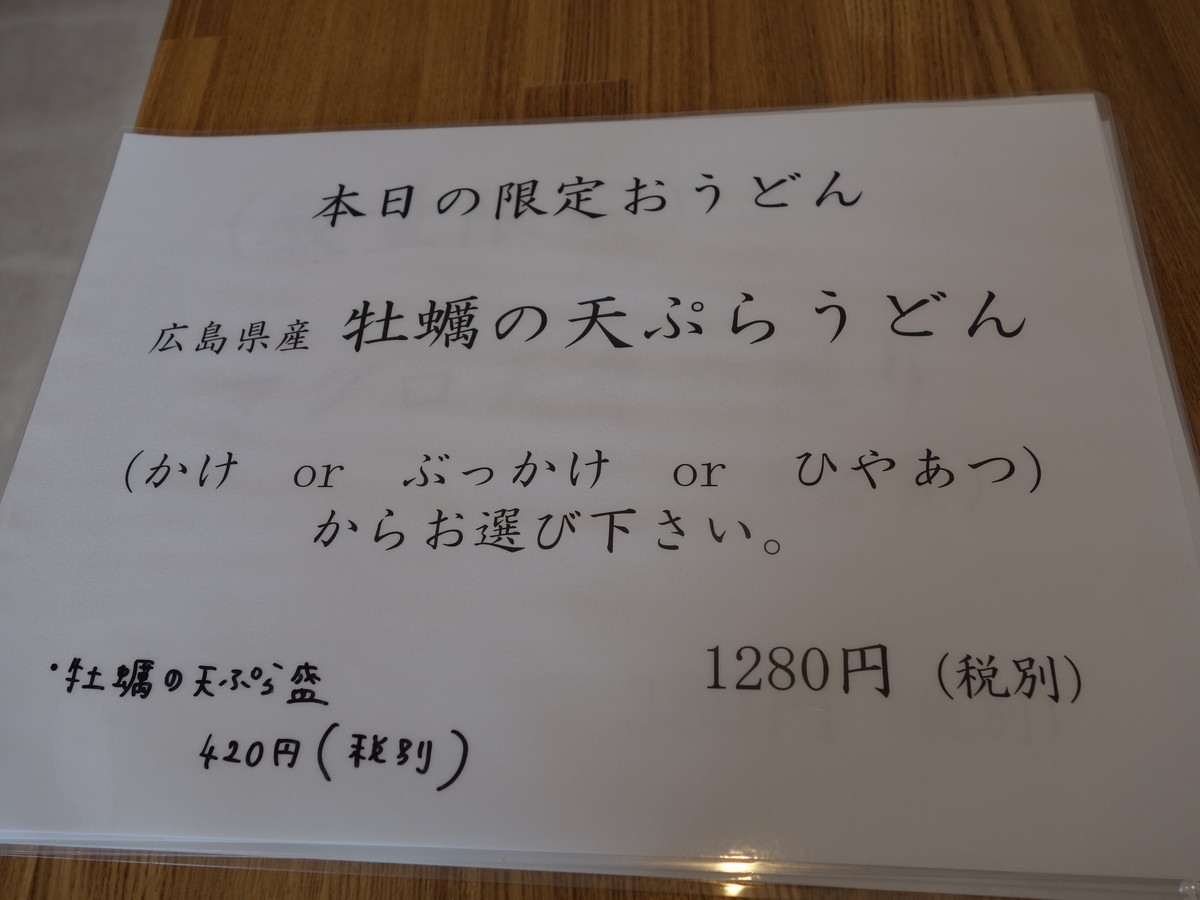 本日の限定おうどん
広島県産 牡蠣の天ぷらうどん
(かけ or ぶっかけ or ひやあつ)
からお選び下さい。
1280円 (税別)
・牡蠣の天ぷら盛
420円(税別)